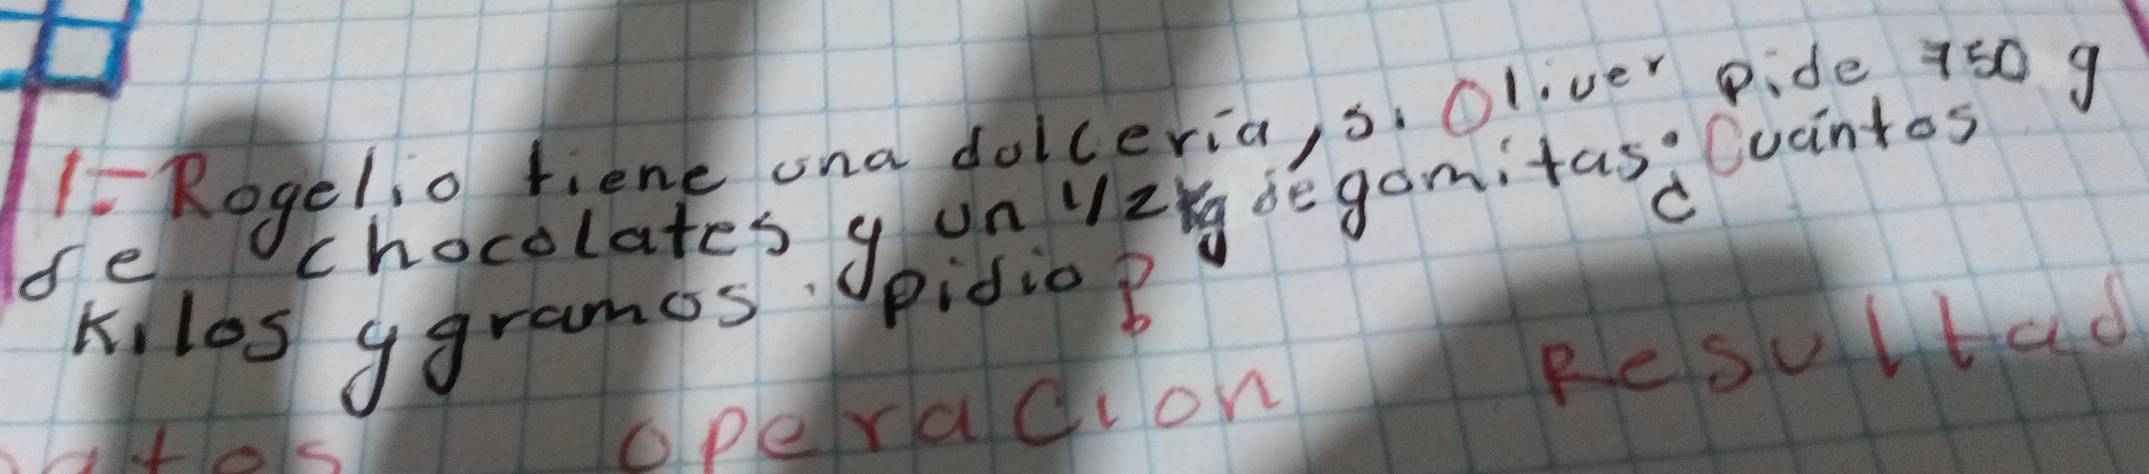 1.- Rogelio tiene una dulcería, si Oliver pide 750 g
de chocolates y un 1/2 kg de gomitas ¿Cuántos
kilos y gramos pidio?
atos operacion Resultad